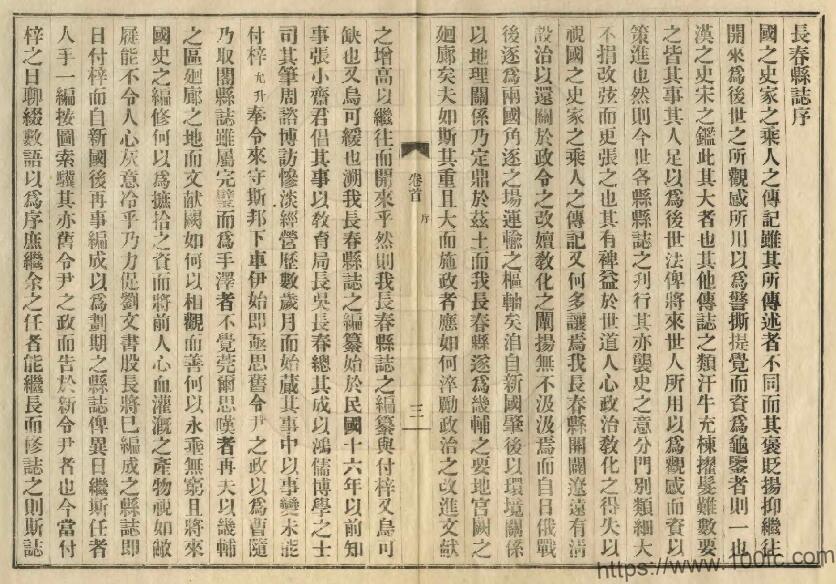 長春縣誌序
國之史家之乘人之傳記雖其所傳述者不同而其褒貶揚抑繼往
開來爲後世之所觀感所用以爲警撕提覺而資爲龜鑒者則一也
漢之史宋之鑑此其大者也其他傳誌之類汗牛充棟擢髮難數要
之皆其事其人足以爲後世法俾將來世人所用以爲觀感而資以
策進也然則今世各縣縣誌之刋行其亦襲史之意分門別類細大
不捐改弦而更張之也其有裨益於世道人心政治敎化之得失以
視國之史家之乘人之傳記又何多讓焉我長春縣開闢遼遠有淸
設治以還關於政令之改嬗敎化之闡揚無不汲汲焉而自日俄戰
後逐爲兩國角逐之場運輸之樞軸矣洎自新國肇後以環境關係
以地理關係乃定鼎於茲土而我長春縣遂爲畿輔之要地官闕之
廻廊矣夫如斯其重且大而施政者應如何淬勵政治之改進文獻
之增高以繼往而開來乎然則我長春縣誌之編纂與付梓又烏可
缺也又烏可緩也溯我長春縣誌之編纂始於民國十六年以前知
事張小齋君倡其事以敎育局長吳長春總其成以鴻儒博學之士
司其筆周諮博訪慘淡經營歷數歲月而始蕆其事中以事變未能
付梓允升奉令來守斯邦下車伊始即亟思舊令尹之政以爲曹隨
乃取閣縣誌雖屬完璧而爲手澤者不覺莞爾思嘆者再夫以畿輔
之區廻廊之地而文献闕如何以相觀而善何以永乘無窮且將來
國史之編修何以爲摭拾之資而將前人心血灌漑之產物視如敝
屣能不令人心灰意冷乎乃力促劉文書股長將巳編成之縣誌即
日付梓而自新國後再事編成以爲劃期之縣誌俾異日繼斯任者
人手一編按圖索驥其亦舊令尹之政而告於新令尹者也今當付
梓之日聊綴數語以爲序庶繼余之任者能繼長而修誌之則斯誌
卷首
序
三
https://www.100fc.com